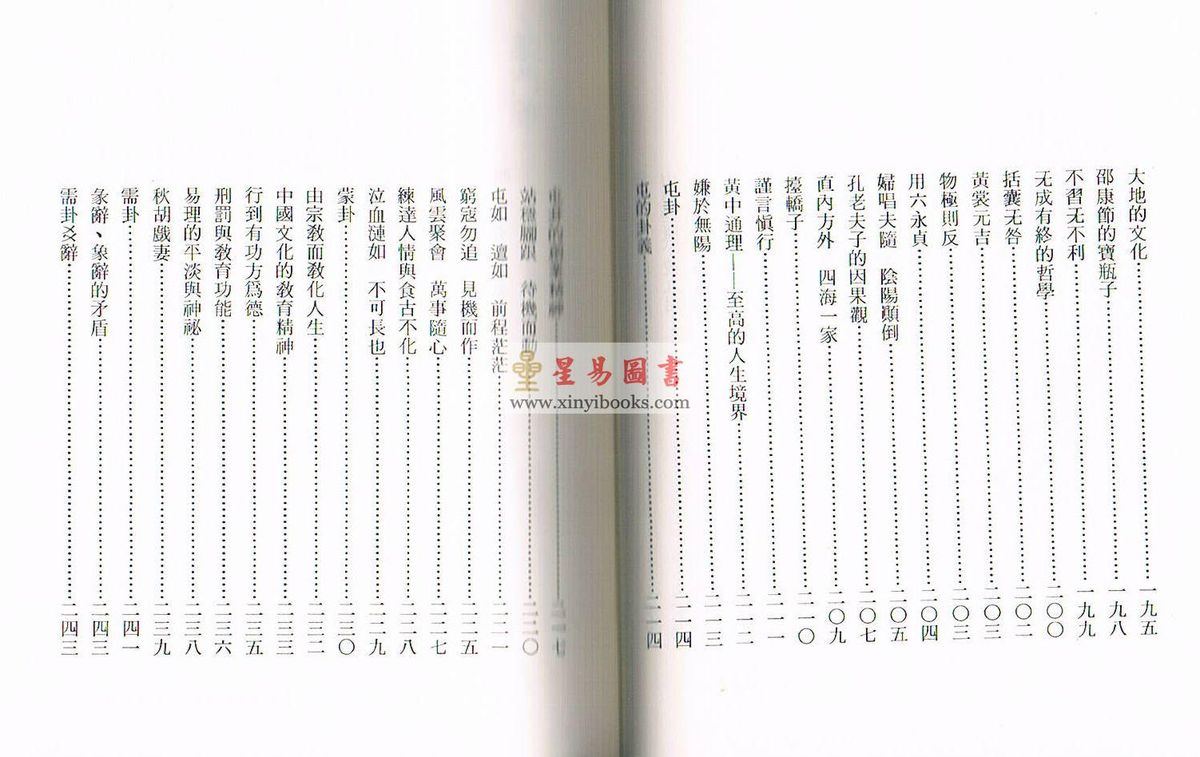 大地的文化………一九五
邵康節的寶瓶子………一九八
不習无不利………一九九
无成有終的哲學………二〇〇
括囊无咎………二〇二
黃裳元吉………二〇三
物極則反………二〇三
用六永貞………二〇四
婦唱夫隨 陰陽顚倒………二〇五
孔老夫子的因果觀………二〇七
直內方外 四海一家………二〇九
擡轎子………二一〇
謹言愼行………二一一
黃中通理——至高的人生境界………二一二
嫌於無陽………二一三
屯卦………二一四
屯的卦義………二一四
屯卦的
站穩腳跟 待機而動………二二〇
屯如 邅如 前程茫茫………二二一
窮寇勿追 見機而作………二二五
風雲聚會 萬事隨心………二二七
練達人情與食古不化………二二八
泣血漣如 不可長也………二二九
蒙卦………二三〇
由宗教而教化人生………二三二
中國文化的教育精神………二三三
行到有功方爲德………二三五
刑罰與教育功能………二三六
易理的平淡與神祕………二三八
秋胡戲妻………二三九
需卦………二四一
彖辭、象辭的矛盾………二四三
需卦爻辭………二四三
星易圖書
www.xinyibooks.com